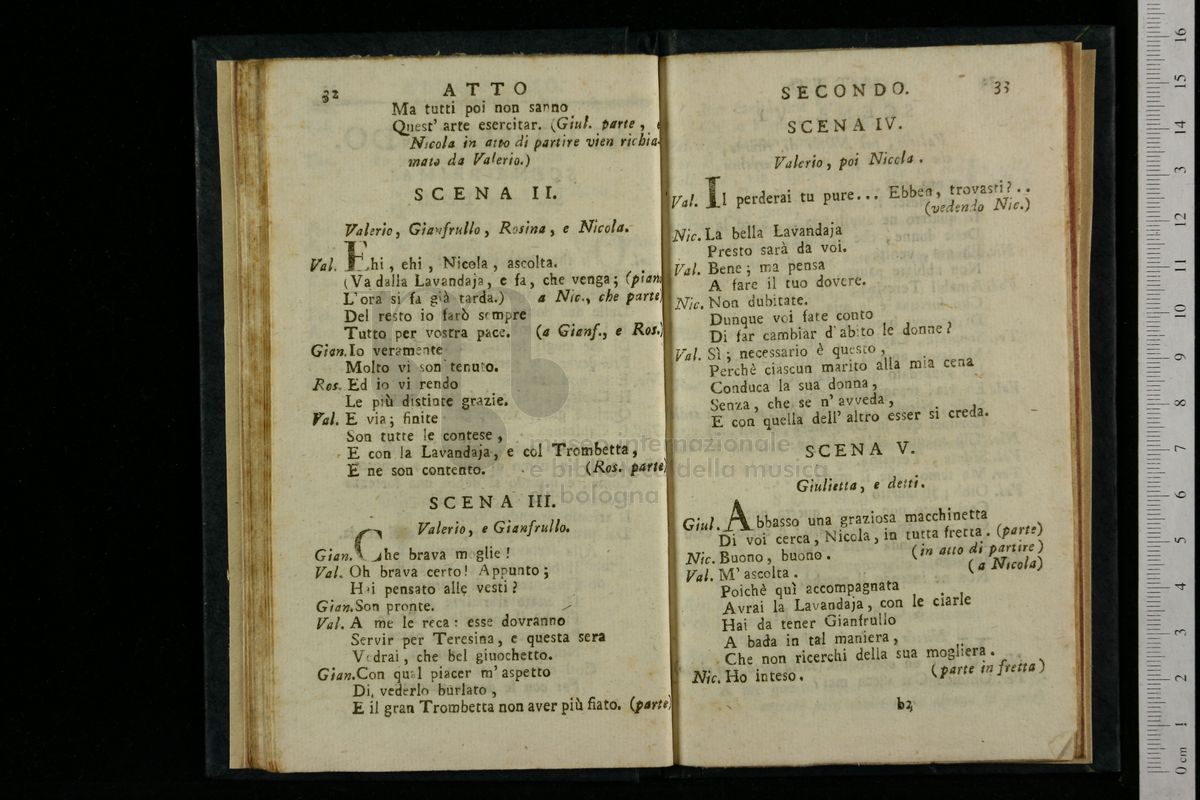 32
ATTO
Ma tutti poi non sanno
Quest' arte esercitar. (Giul. parte, e
Nicola in atto di partire vien richia-
mato da Valerio.)
SCENA II.
Valerio, Gianfrullo, Rosina, e Nicola.
Val. Ehi, ehi, Nicola, ascolta.
(Va dalla Lavandaja, e fa, che venga; (pian
L'ora si fa già tarda.) a Nic., che parte)
Del resto io farò sempre
Tutto per vostra pace. (a Gianf., e Ros.)
Gian. Io veramente
Molto vi son tenuto.
Ros. Ed io vi rendo
Le più distinte grazie.
Val. E via; finite
Son tutte le contese,
E con la Lavandaja, e col Trombetta,
E ne son contento. (Ros. parte)
SCENA III.
Valerio, e Gianfrullo.
Gian. Che brava moglie!
Val. Oh brava certo! Appunto;
Hai pensato alle vesti?
Gian. Son pronte.
Val. A me le reca: esse dovranno
Servir per Teresina, e questa sera
Vedrai, che bel giuochetto.
Gian. Con qual piacer m'aspetto
Di, vederlo burlato,
E il gran Trombetta non aver più fiato. (parte)
SECONDO. 33
SCENA IV.
Valerio, poi Nicola.
Val. Il perderai tu pure... Ebben, trovasti?..
(vedendo Nic.)
Nic. La bella Lavandaja
Presto sarà da voi.
Val. Bene; ma pensa
A fare il tuo dovere.
Nic. Non dubitate.
Dunque voi fate conto
Di far cambiar d'abito le donne?
Val. Sì; necessario è questo,
Perchè ciascun marito alla mia cena
Conduca la sua donna,
Senza, che se n' avveda,
E con quella dell' altro esser si creda.
SCENA V.
Giulietta, e detti.
Giul. Abbasso una graziosa macchinetta
Di voi cerca, Nicola, in tutta fretta. (parte)
Nic. Buono, buono. (in atto di partire)
Val. M' ascolta. (a Nicola)
Poichè quì accompagnata
Avrai la Lavandaja, con le ciarle
Hai da tener Gianfrullo
A bada in tal maniera,
Che non ricerchi della sua mogliera.
Nic. Ho inteso. (parte in fretta)
b2
museo internazionale
e biblioteca della musica
di bologna
0 cm 1 2 3 4 5 6 7 8 9 10 11 12 13 14 15 16